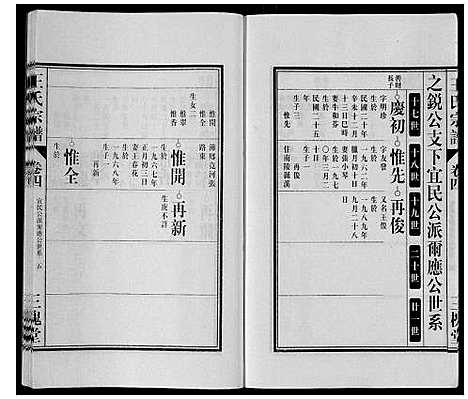 王氏宗譜
卷四
三槐堂
之鋭公支下宜民公派爾應公世系
十七世
十八世
十九世
二十世
廿一世
長子
慶初
字明珍
生於
民國二十年
辛未十二月
十三日巳時
妻牛和芬
生於
民國二十五
生子一
惟先
惟先
字友發
生於
一九六二年
妻張小琴
生子一
再俊
住南陵澗溪
再俊
又名王俊
生於
一九八九年
九月二十八
生女二
惟翠
惟香
惟開
惟全
惟開
路東
生於
一九六七年
正月初三日
妻王春花
生於
一九六八年
生子一
再新
再新
生庚不詳
惟全
生於
王氏宗譜
卷四
宜民公派爾應公世系
五
三槐堂